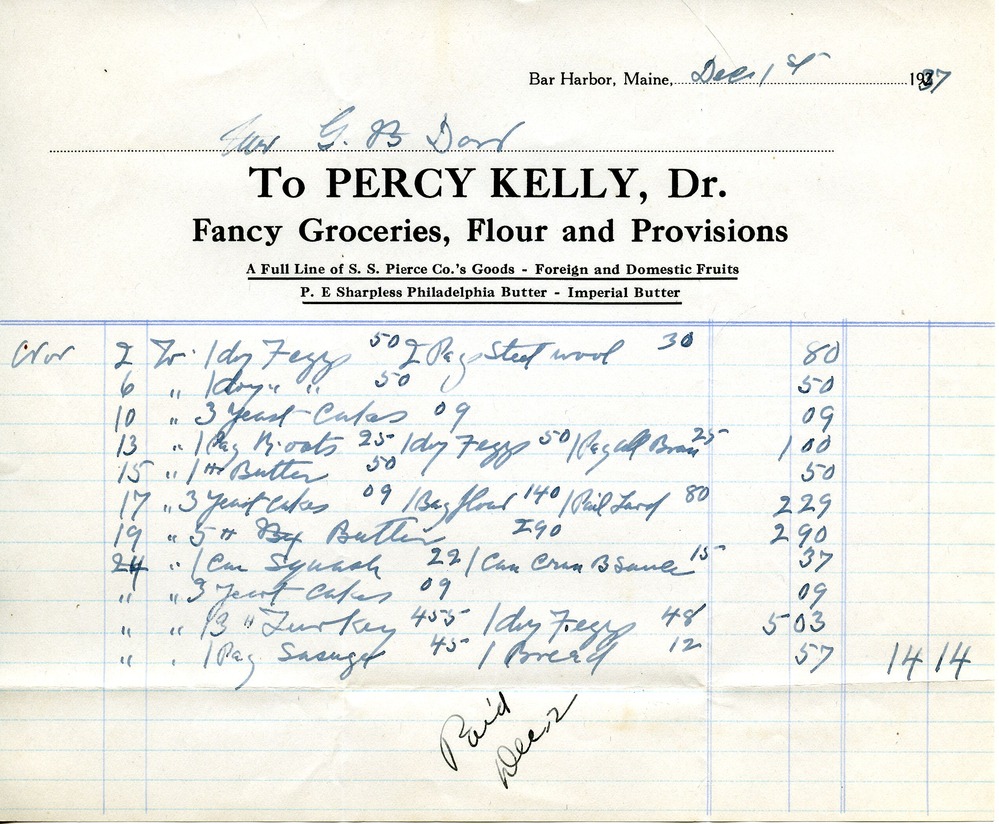 Bar Harbor, Maine, Dec 1st 1937
G. B Dorr
To PERCY KELLY, Dr.
Fancy Groceries, Flour and Provisions
A Full Line of S. S. Pierce Co.'s Goods - Foreign and Domestic Fruits
P. E Sharpless Philadelphia Butter - Imperial Butter
Nov 2 To 1 doz F eggs 50 2 Pag Steel wool 30 80
6 " 1 doz " " 50 50
10 " 3 Yeast Cakes 09 09
13 " 1 Pag R. oats 25 1 doz F eggs 50 1 Pag all Bran 25 1 00
15 " 1 # Butter 50 50
17 " 3 Yeast Cakes 09 1 Bag flour 140 1 Pail Lard 80 2 29
19 " 5 # Butter 290 2 90
24 " 1 Can Squash 22 1 Can Cran B Sauce 15 37
" " 3 Yeast Cakes 09 09
" " 13 # Turkey 455 1 doz F. eggs 48 5 03
" " 1 Pag Sausage 45 1 Bread 12 57 14 14
Paid
Dec. 2